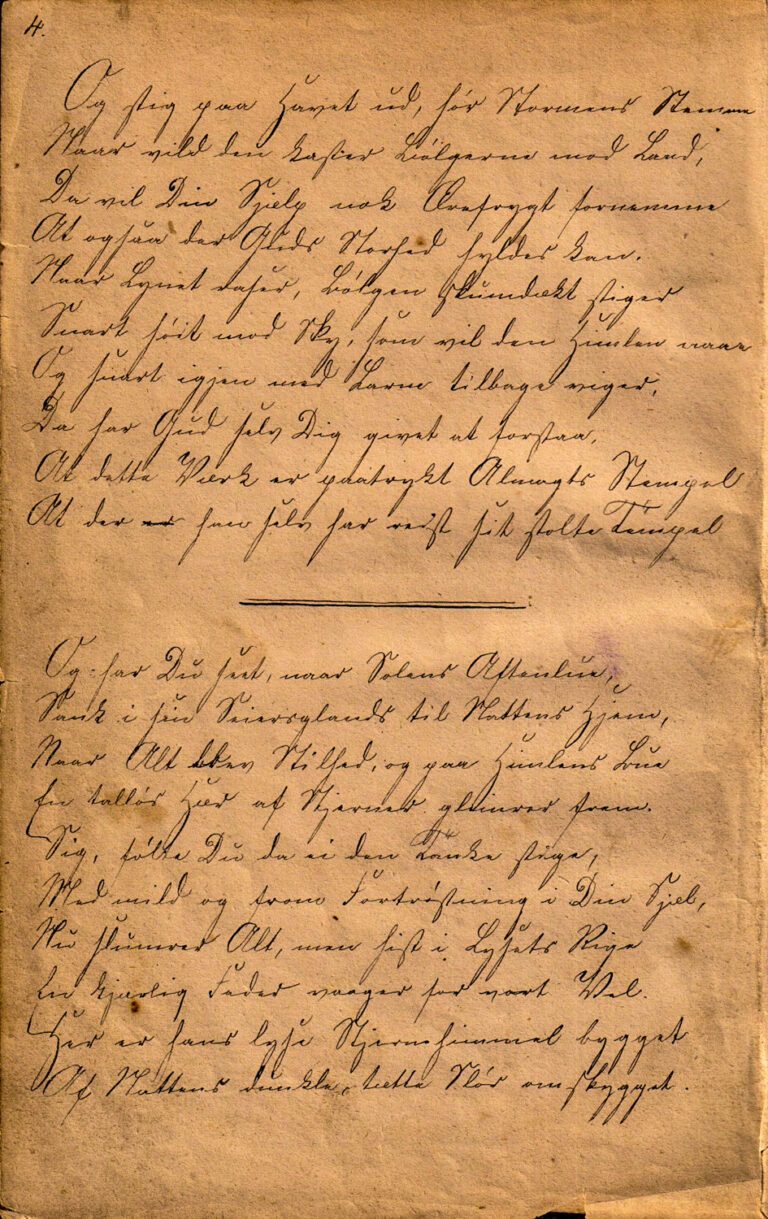 4.
Og stig paa Havet ud, hør Stormens Stemme
Naar vild den kaster Bølgerne mod Land,
Da vil Din Sjæl nok Ærefrygt fornemme
At ogsaa der Guds Storhed hyldes kan.
Naar Lynet raser, Bølgen skumdækt stiger
Snart høit mod Sky, som vil den Himlen naae
Og snart igjen med Larm tilbage viger,
Da har Gud selv Dig givet at forstaa,
At dette Værk er paatrykt Almagts Stempel
At der er han selv har reist sit stolte Tempel
Og har Du seet, naar Solens Aftenlue,
Sank i sin Seiersglands til Nattens Hjem,
Naar Alt blev Stilhed, og paa Himlens Bue
En talløs Hær af Stjerner glimrer frem.
Sig, følte Du da ei den Tanke stige,
Med mild og from Fortrøstning i Din Sjæl,
Nu slumrer Alt, men hist i Lysets Rige
En kjærlig Fader vaager for vort Vel.
Her er hans lyse Stjernehimmel bygget
Af Nattens dunkle, tætte Slør omskygget.